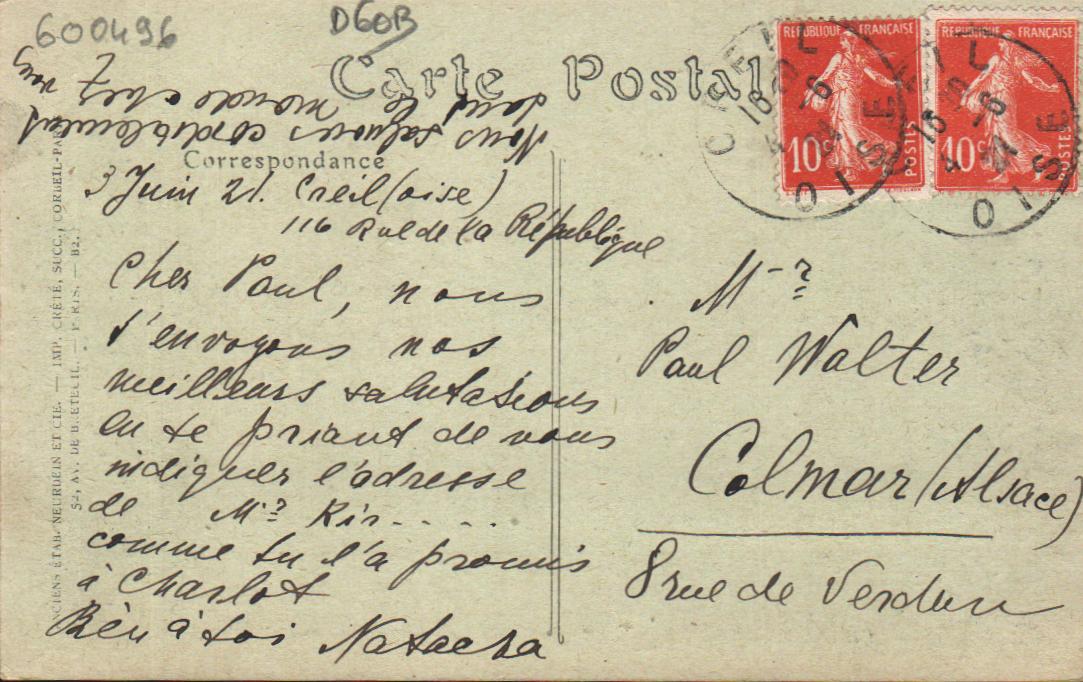 600496
D60B
Carte Postale
Correspondance
3 Juin 21. Creil (oise)
116 Rue de la République
Cher Paul, nous
t'envoyons nos
meilleurs salutations
en te priant de nous
indiquer l'adresse
de Mr Kir.....
comme tu l'a promis
à Charlot
Bien à toi Natacha
Nous saluons cordialement
tout le monde chez
vous
Mr
Paul Walter
Colmar (Alsace)
8 rue de Verdun
REPUBLIQUE FRANÇAISE
10c
POSTES
REPUBLIQUE FRANÇAISE
10c
POSTES
CREIL
OISE
16
4 -6
21
ANCIENS ÉTAB. NEURDEIN ET CIE. — IMP. CRÉTÉ, SUCC., CORBEIL-PA
52, AV. DE BRETEUIL. — PARIS. — B2.